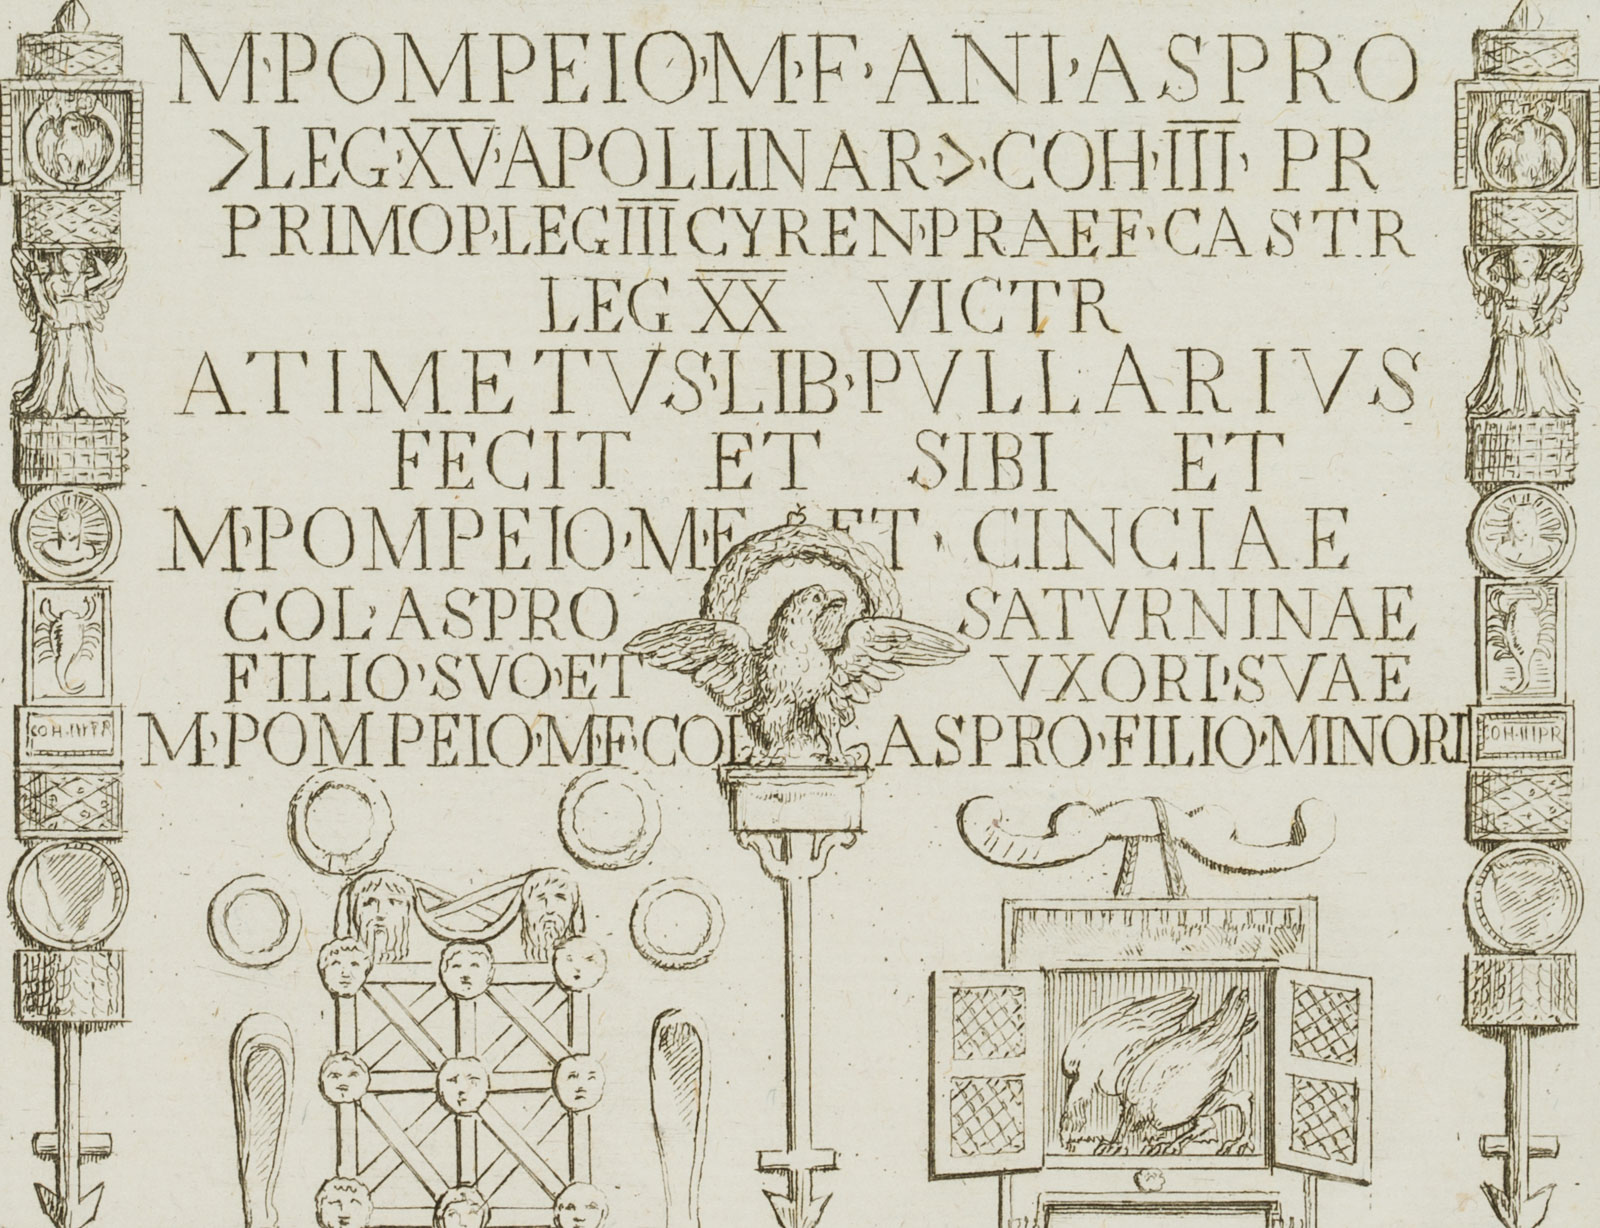 M·POMPEIO·M·F·ANI·ASPRO
>LEG·X̅V̅·APOLLINAR·>·COH·I̅I̅I̅· PR
PRIMOP·LEG I̅I̅I̅ CYREN·PRAEF·CASTR
LEG X̅X̅ VICTR
ATIMETVS·LIB·PVLLARIVS
FECIT ET SIBI ET
M·POMPEIO·M·F ET · CINCIAE
COL·ASPRO SATVRNINAE
FILIO·SVO·ET VXORI·SVAE
COH·III PR M·POMPEIO·M·F·COL ASPRO·FILIO·MINORI COH·III PR